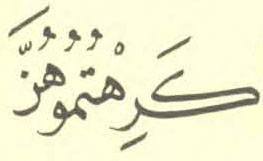 كَرِهْتُمُوهُنَّ